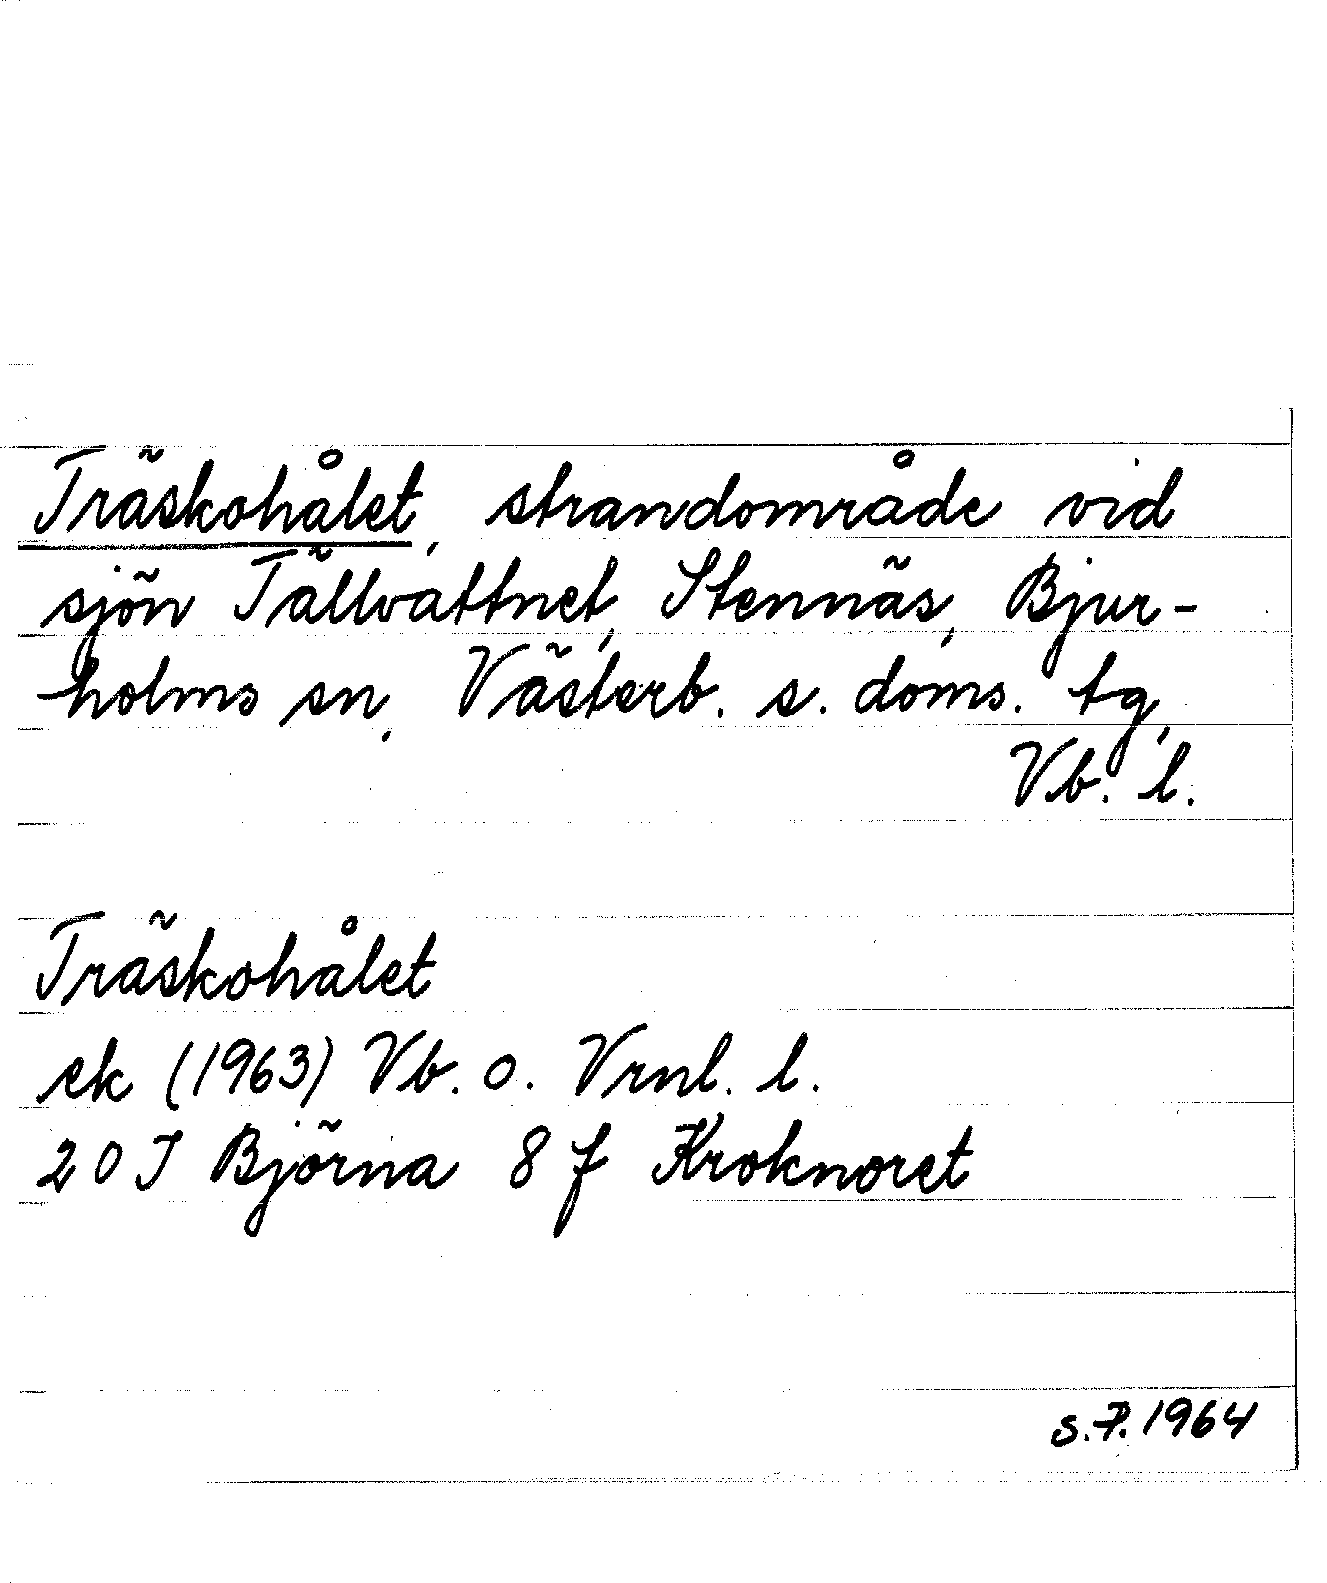 Träskohålet, strandområde vid
sjön Tällvattnet, Stennäs, Bjur-
holms sn, Västerb. s. doms. tg,
Vb. l.
Träskohålet
ek (1963) Vb. o. Vrnl. l.
20 J Björna 8 f Kroknoret
S.P. 1964